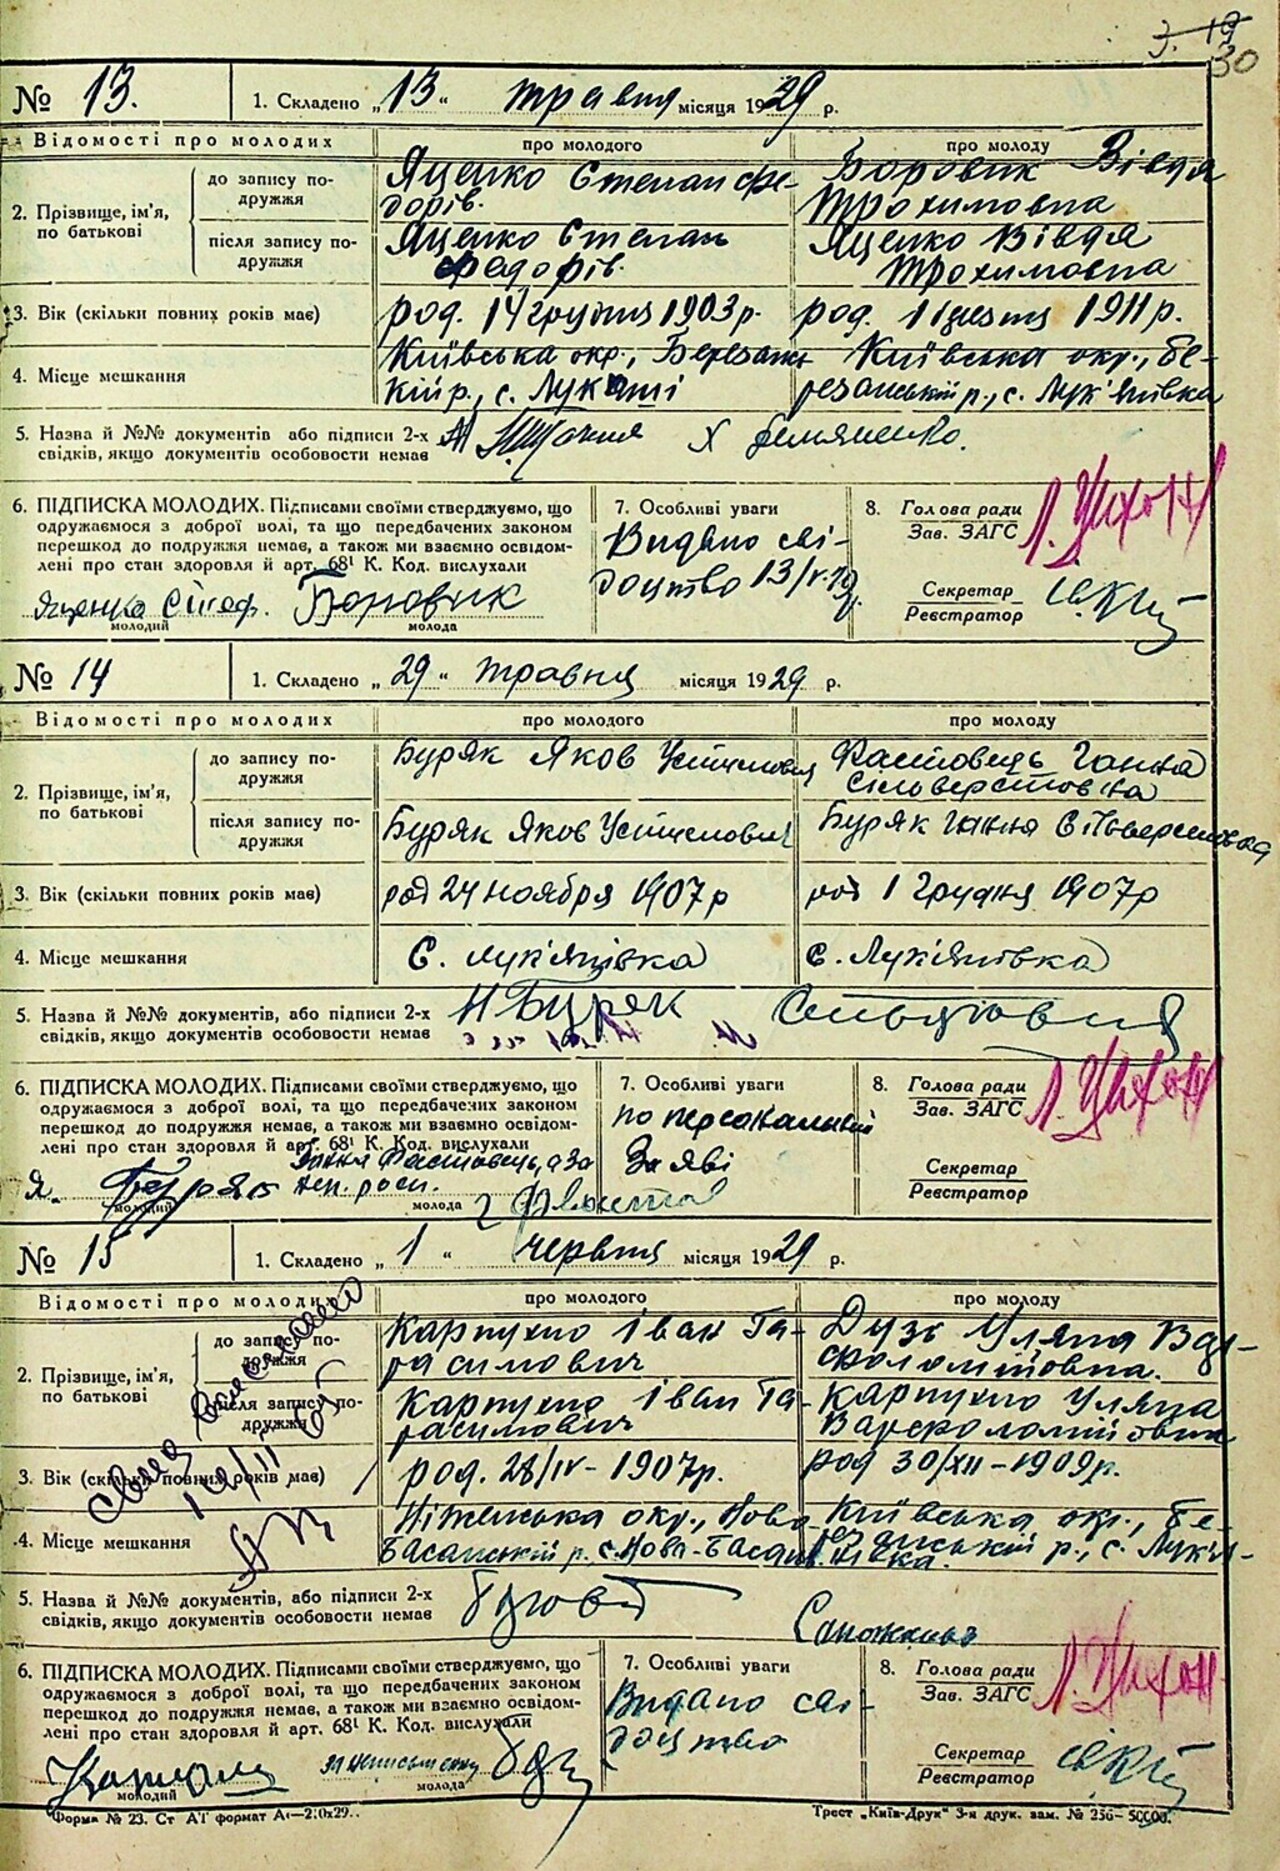 3. 19
30
№ 13. 1. Складено „13“ травня місяця 1929 р.
Відомості про молодих про молодого про молоду
2. Прізвище, ім'я, по батькові
до запису по-
дружжя
Яценко Степан Фе-
дорів.
Боровик Вівдя
Трохимовна
після запису по-
дружжя
Яценко Степан
Федорів.
Яценко Вівдя
Трохимовна
3. Вік (скільки повних років має) род. 14 грудня 1903 р. род. 1 1911 р.
4. Місце мешкання
Київська окр., Березансь
кій р., с. Лукаші
Київська окр., Бе-
резанській р., с. Лук'янівка
5. Назва й №№ документів або підписи 2-х
свідків, якщо документів особовости немає
6. ПІДПИСКА МОЛОДИХ. Підписами своїми стверджуємо, що
одружаємося з доброї волі, та що передбачених законом
перешкод до подружжя немає, а також ми взаємно освідом-
лені про стан здоровля й арт. 68¹ К. Код. вислухали
Яценко Степ. Боровик
молодий молода
7. Особливі уваги
Видано сві-
доцтво 13/V-29
8. Голова ради
Зав. ЗАГС
Секретар
Реєстратор
№ 14 1. Складено „29“ травня місяця 1929 р.
Відомості про молодих про молодого про молоду
2. Прізвище, ім'я, по батькові
до запису по-
дружжя
Буряк Яков
Фастовець Ганна
Сільверстовна
після запису по-
дружжя
Буряк Яков
Буряк Ганна Сільверстовна
3. Вік (скільки повних років має) род 24 ноября 1907 р род 1 Грудня 1907 р
4. Місце мешкання С. Лук'янівка С. Лук'янівка
5. Назва й №№ документів, або підписи 2-х
свідків, якщо документів особовости немає
Н Буряк
6. ПІДПИСКА МОЛОДИХ. Підписами своїми стверджуємо, що
одружаємося з доброї волі, та що передбачених законом
перешкод до подружжя немає, а також ми взаємно освідом-
лені про стан здоровля й арт. 68¹ К. Код. вислухали
Ганна Фастовець, а за
неп. росп.
Я. Буряк
молодий молода
7. Особливі уваги
по персональній
Заяві
8. Голова ради
Зав. ЗАГС
Секретар
Реєстратор
№ 15 1. Складено „1“ червня місяця 1929 р.
Відомості про молодих про молодого про молоду
2. Прізвище, ім'я, по батькові
до запису по-
дружжя
Карпухно Іван Га-
расимович
Дузь Уляна Вар-
фоломіївна.
після запису по-
дружжя
Карпухно Іван Га-
расимович
Карпухно Уляна
Варфоломіївна
3. Вік (скільки повних років має) род. 28/IV-1907 р. род 30/XII-1909 р.
4. Місце мешкання
Ніженська окр., Ново-
Басанській р., с. Нова-Басань.
Київська окр., Бе-
занській р., с. Лук'я-
нівка.
5. Назва й №№ документів, або підписи 2-х
свідків, якщо документів особовости немає
6. ПІДПИСКА МОЛОДИХ. Підписами своїми стверджуємо, що
одружаємося з доброї волі, та що передбачених законом
перешкод до подружжя немає, а також ми взаємно освідом-
лені про стан здоровля й арт. 68¹ К. Код. вислухали
молодий молода
7. Особливі уваги
Видано сві-
доцтво
8. Голова ради
Зав. ЗАГС
Секретар
Реєстратор
Форма № 23. Ст АТ формат А
Трест „Київ-Друк“ 3-я друк. зам. № 256—50000.